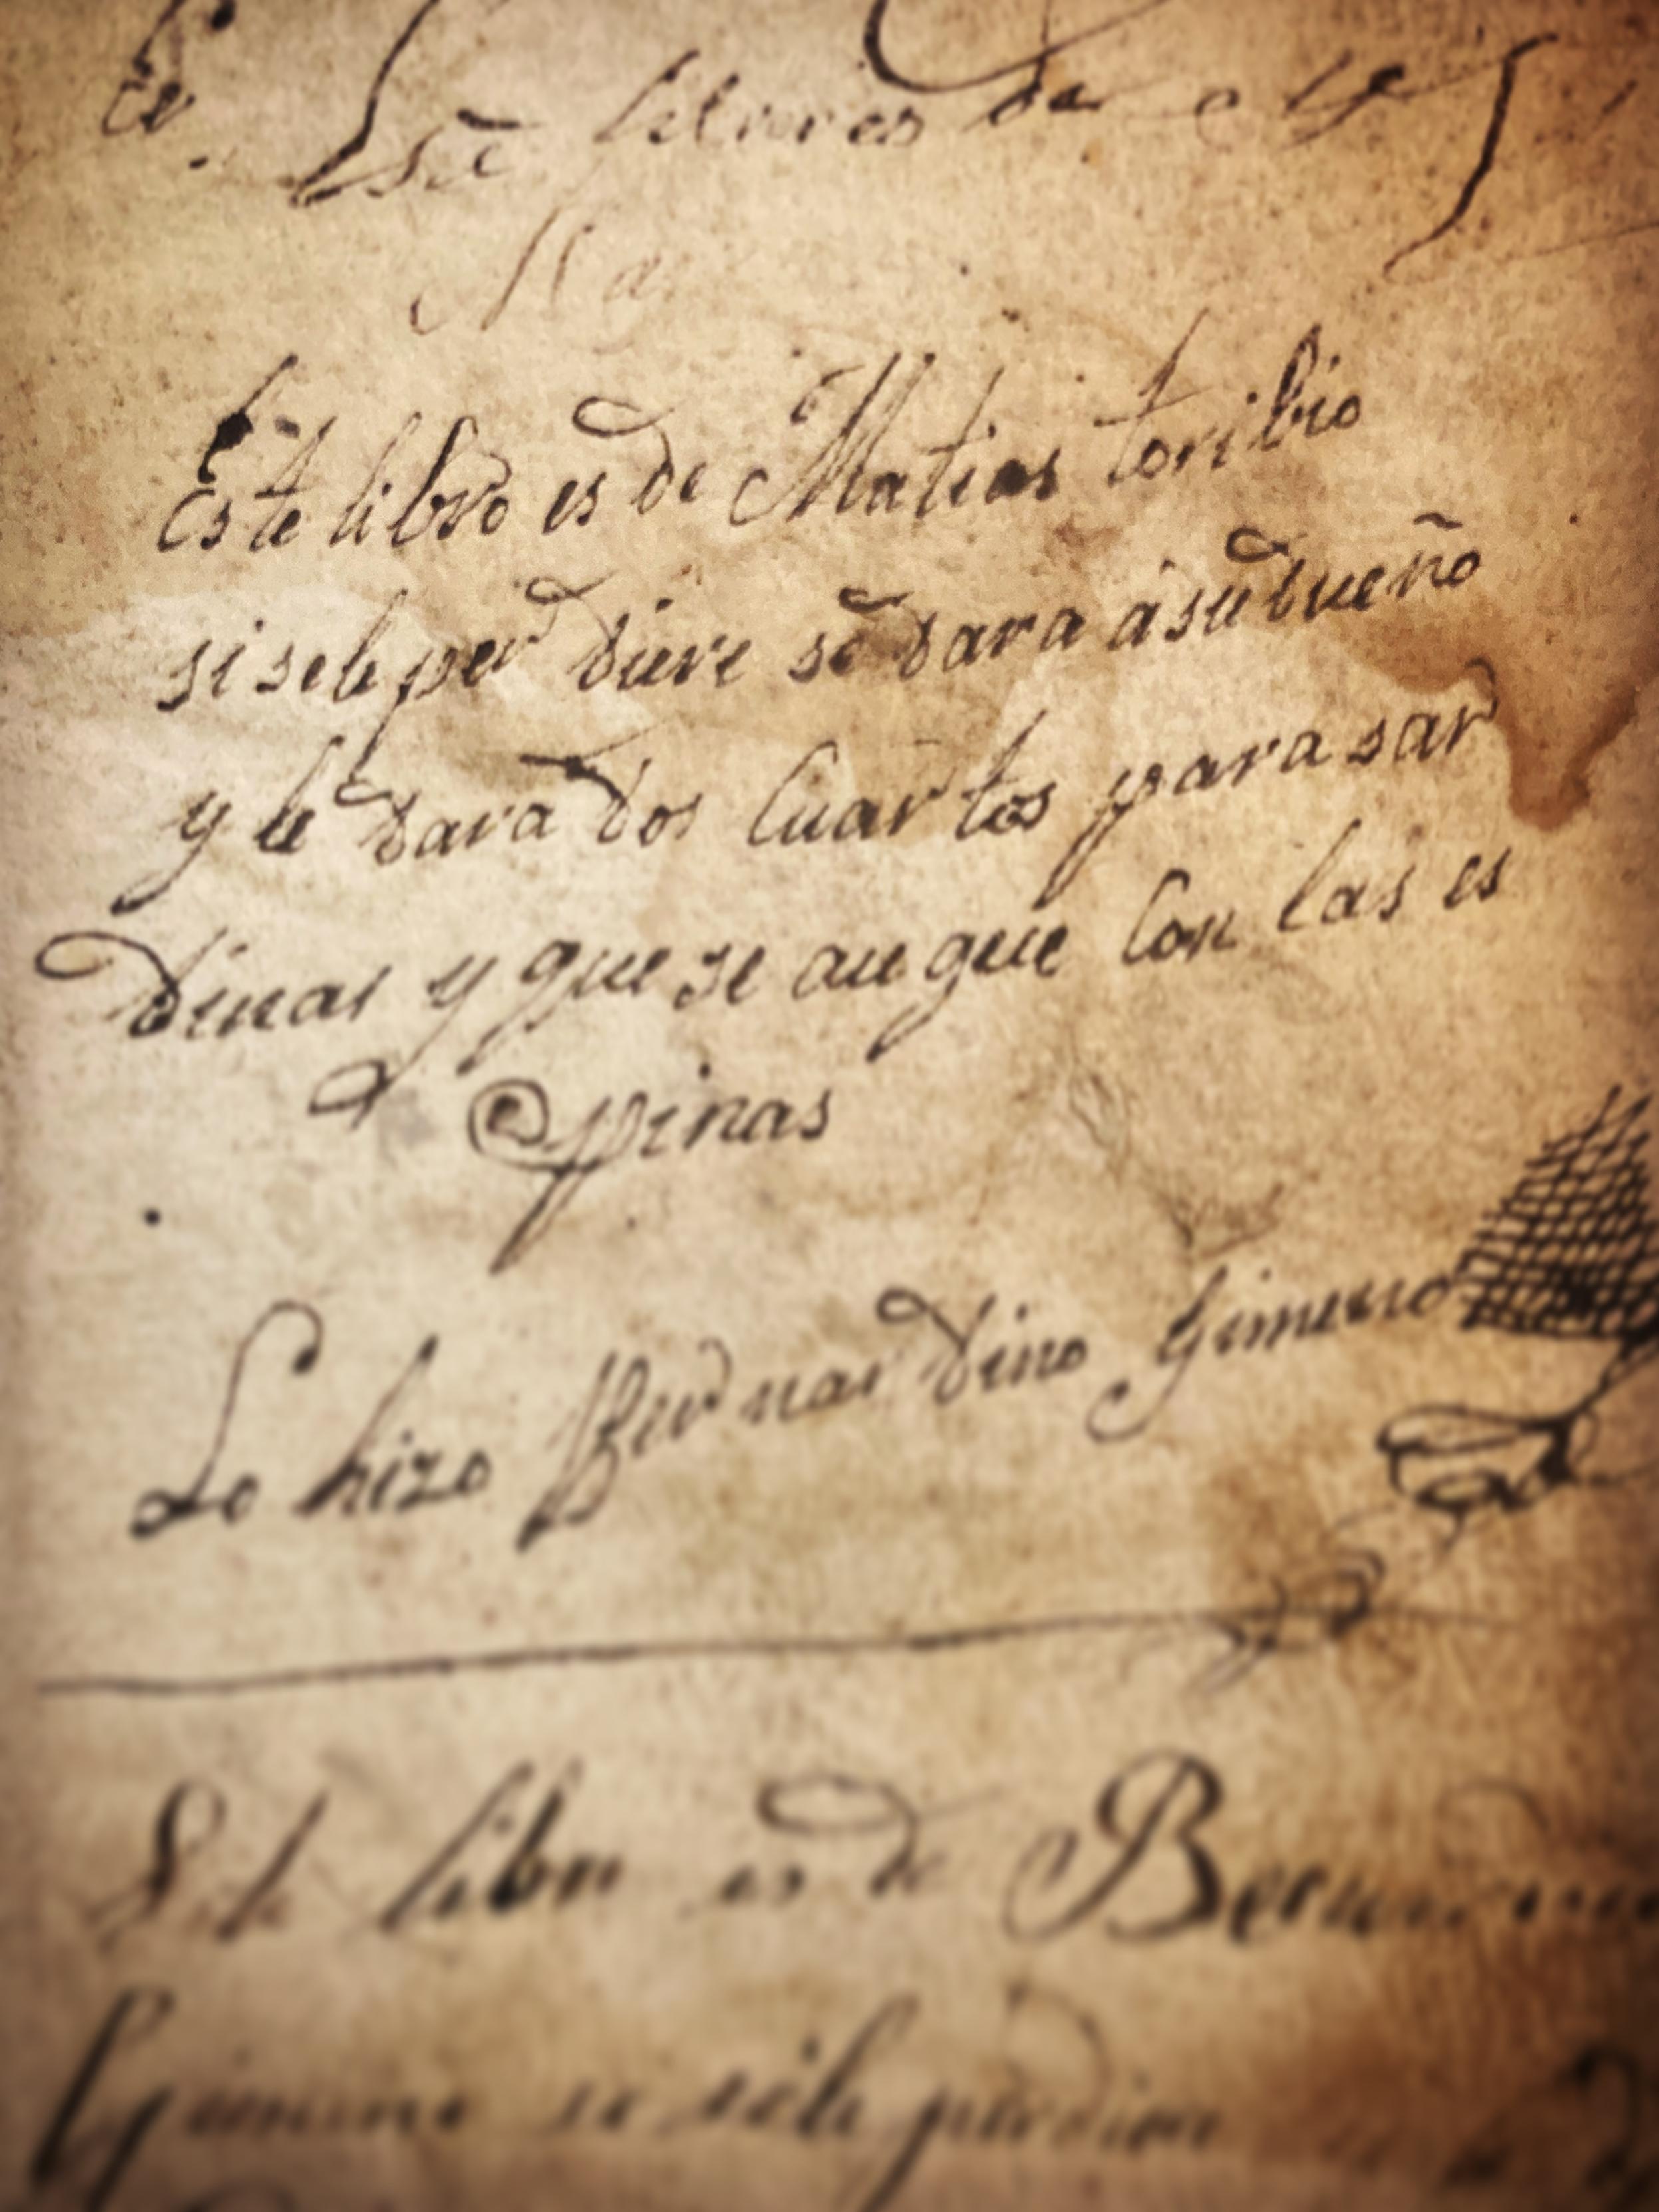 Este libro es de Matias toribio
si sele per diere se dara àsu dueño
y le dara dos Cuar tos para sar
dinas y que se au gue Con las es
pinas
Lo hizo Bernar dino Gimeno
Este libro es de
Gimeno si sele perdiere